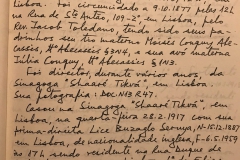 Lisboa. Foi circuncidado a 9.10.1877 pelo 12h
na Rua de Stº Antão, 109-2º, em Lisboa, pelo
Rev. Jacob Toledano, tendo sido seus pa-
drinhos seu tio materno Moisés Conquy Ale-
cassis, Hº Abecassis §3N4, a sua avó materna
Júlia Conquy, Hº Abecassis §1N3.
Foi director, durante vários anos, da
Sinagoga "Shaaré Tikvá" em Lisboa.
Sua fotografia: Doc. NB 3247.
Casou na Sinagoga "Shaaré Tikvá", em
Lisboa, na quarta feira 28.2.1917 com sua
prima-direita Lice Buzaglo Seruya, N-15.12.1887
em Lisboa, de nacionalidade inglesa, F-6.5.1959
às 17h sendo residente na Rua Duque de